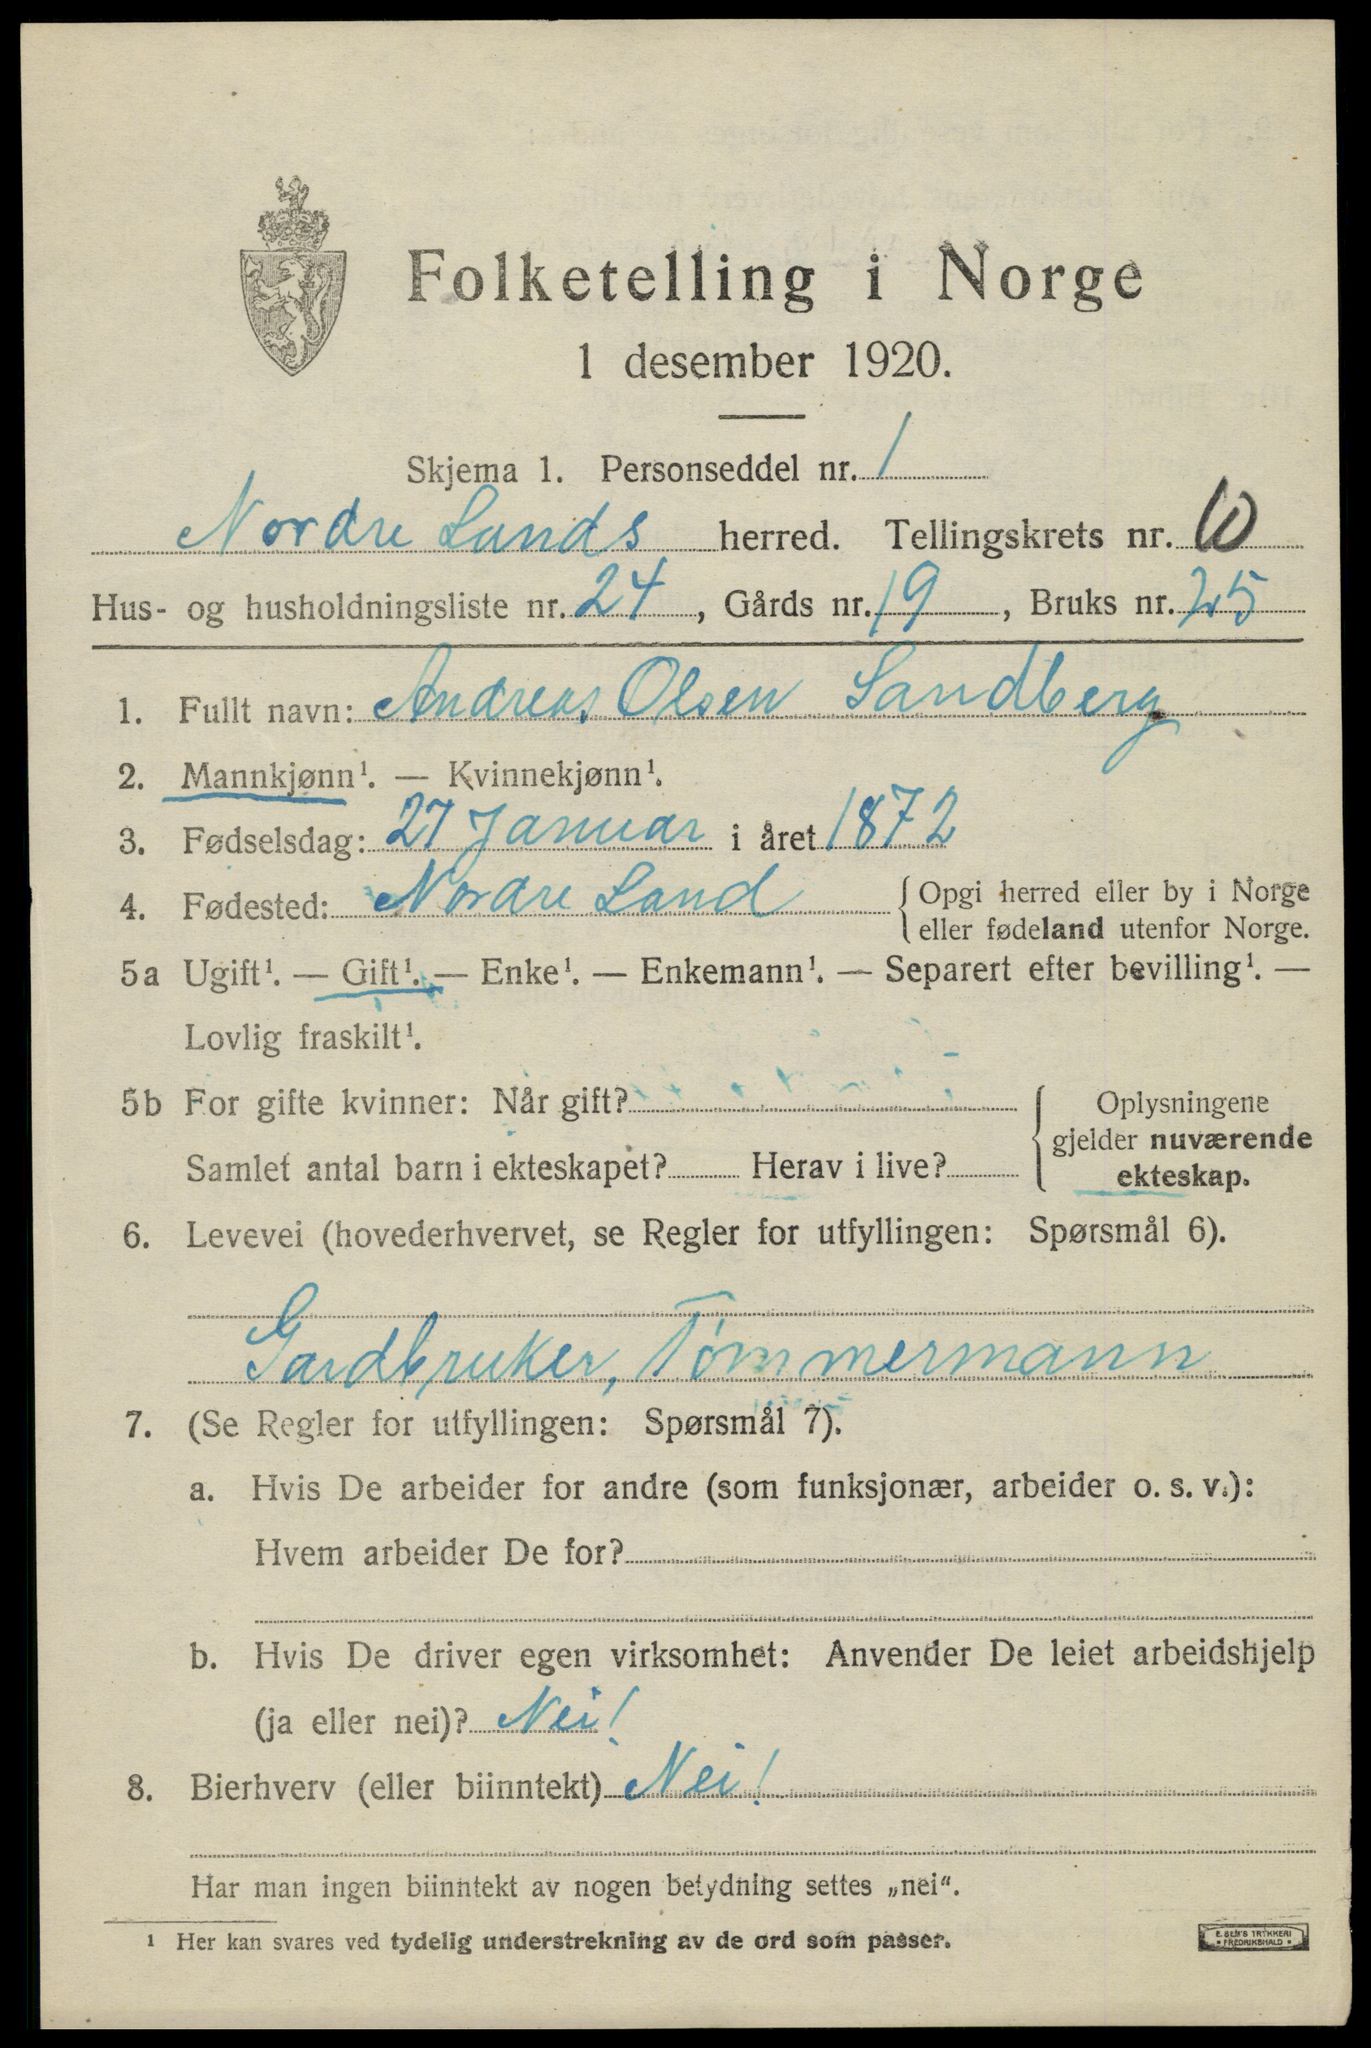 Folketelling i Norge
1 desember 1920.
Skjema 1. Personseddel nr. 1
Nordre Lands herred. Tellingskrets nr. 10
Hus- og husholdningsliste nr. 24, Gårds nr. 19, Bruks nr. 25
1. Fullt navn: Andreas Olsen Sandberg
2. Mannkjønn¹. — Kvinnekjønn¹.
3. Fødselsdag: 27 Januar i året 1872
4. Fødested: Nordre Land { Opgi herred eller by i Norge
eller fødeland utenfor Norge.
5a Ugift¹. — Gift¹. — Enke¹. — Enkemann¹. — Separert efter bevilling¹. —
Lovlig fraskilt¹.
5b For gifte kvinner: Når gift? { Oplysningene
gjelder nuværende
Samlet antal barn i ekteskapet? Herav i live? ekteskap.
6. Levevei (hovederhvervet, se Regler for utfyllingen: Spørsmål 6).
Gardbruker, Tømmermann
7. (Se Regler for utfyllingen: Spørsmål 7).
a. Hvis De arbeider for andre (som funksjonær, arbeider o. s. v.):
Hvem arbeider De for?
b. Hvis De driver egen virksomhet: Anvender De leiet arbeidshjelp
(ja eller nei)? Nei!
8. Bierhverv (eller biinntekt) Nei!
Har man ingen biinntekt av nogen betydning settes „nei“.
¹ Her kan svares ved tydelig understrekning av de ord som passer.
E. SEM'S TRYKKERI
• FREDRIKSHALD •